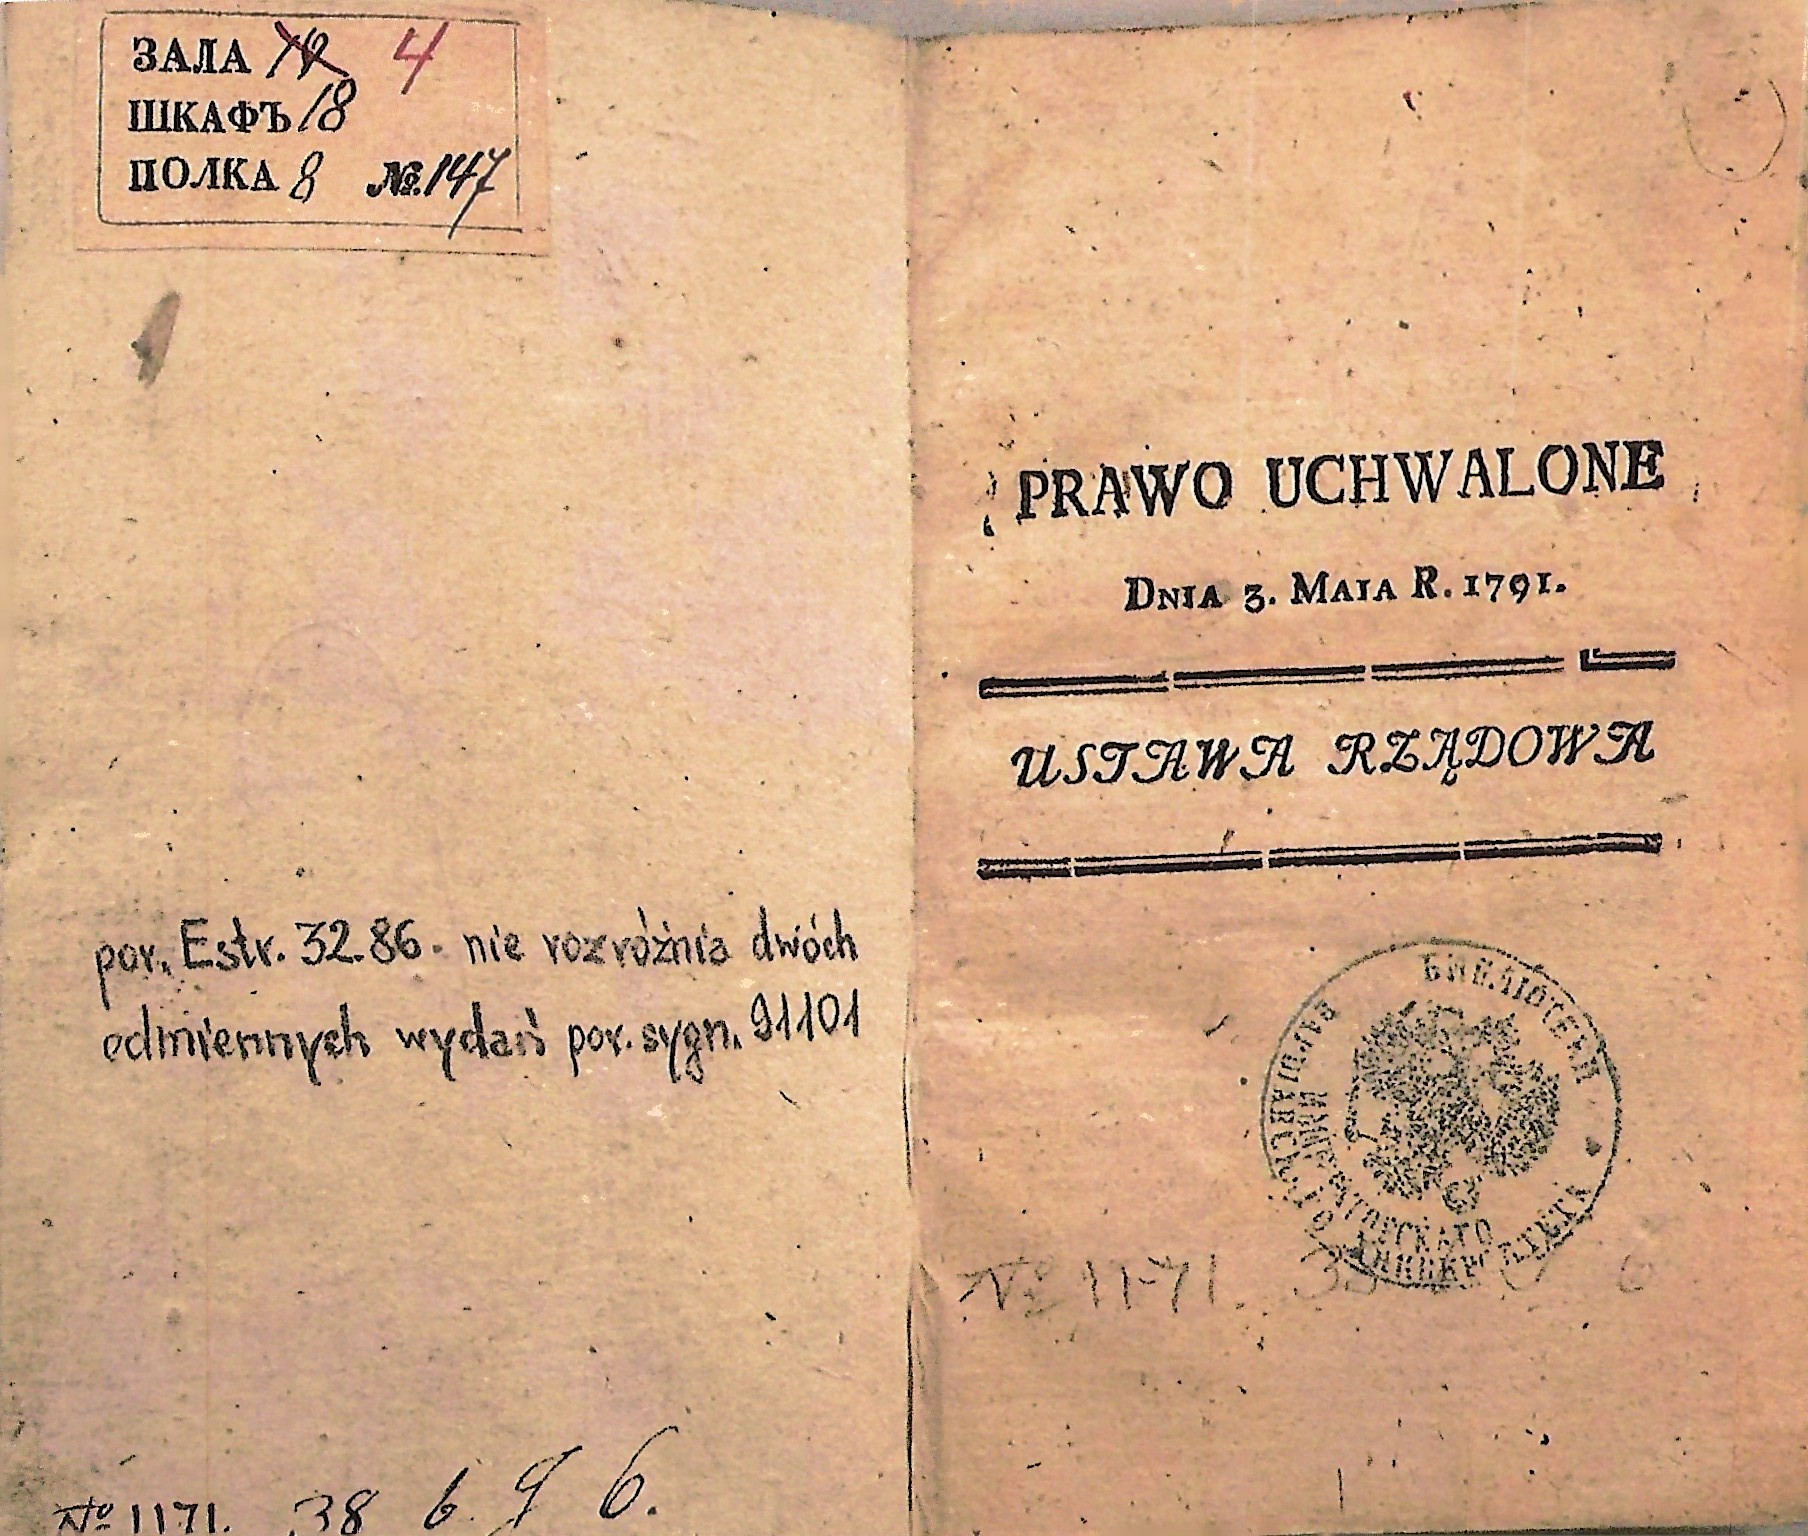 ЗАЛА 4
ШКАФЪ 18
ПОЛКА 8 №.147
por. Estr. 32.86. nie rozróżnia dwóch
odmiennych wydań por. sygn. 91101
№ 1171. 38 6. 9 6.
PRAWO UCHWALONE
DNIA 3. MAIA R. 1791.
USTAWA RZĄDOWA
БИБЛІОТЕКИ
ВАРШАВСКАГО УНИВЕРСИТЕТА
ИМПЕРАТОРСКАГО
№ 1171.